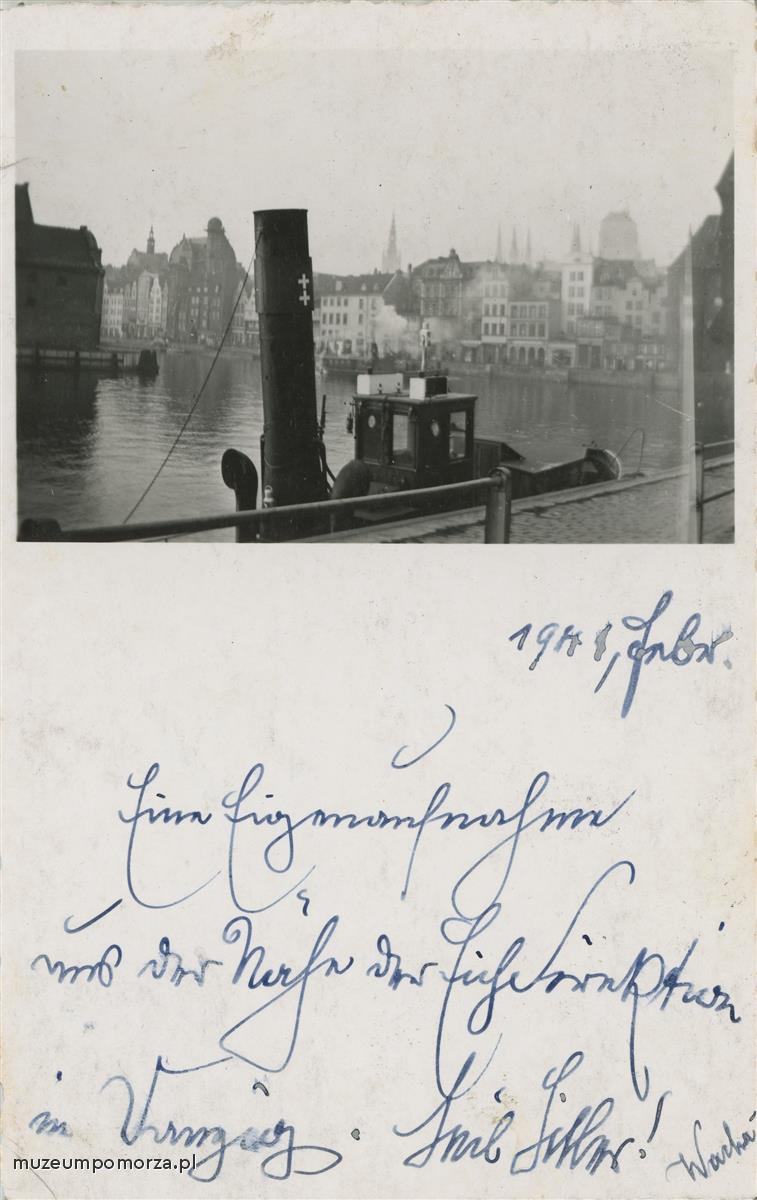 1941, Febr.
Eine Eigenaufnahme
aus der Nähe der Eichdirektion
in Danzig. Heil Hitler!
muzeumpomorza.pl